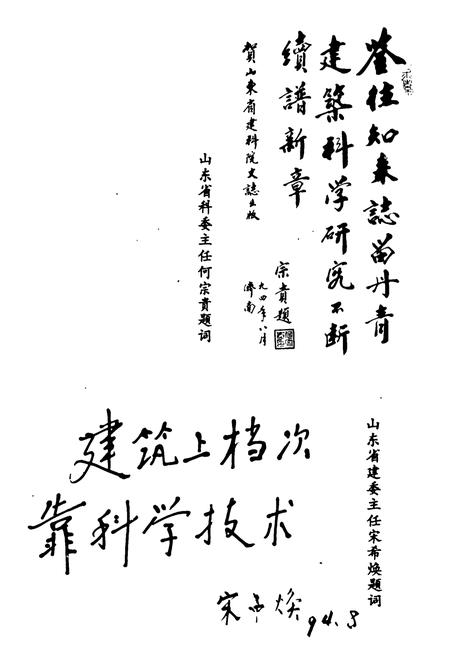 鉴往知来誌留丹青
建築科学研究不断
續譜新章
賀山東省建科院文誌出版
宗貴題
九四年八月
濟南
山东省科委主任何宗贵题词
山东省建委主任宋希焕题词
建筑上档次
靠科学技术
宋希焕 94.8